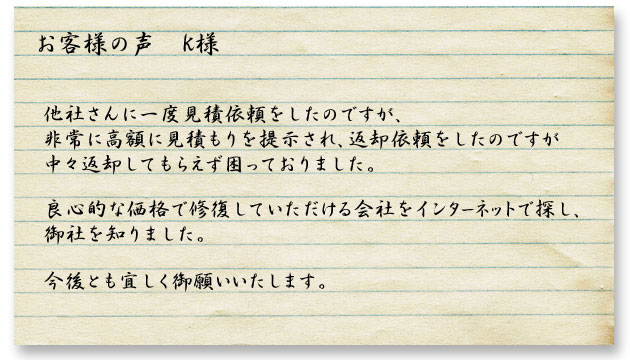 お客様の声　K様
他社さんに一度見積依頼をしたのですが、
非常に高額に見積もりを提示され、返却依頼をしたのですが
中々返却してもらえず困っておりました。
良心的な価格で修復していただける会社をインターネットで探し、
御社を知りました。
今後とも宜しく御願いいたします。